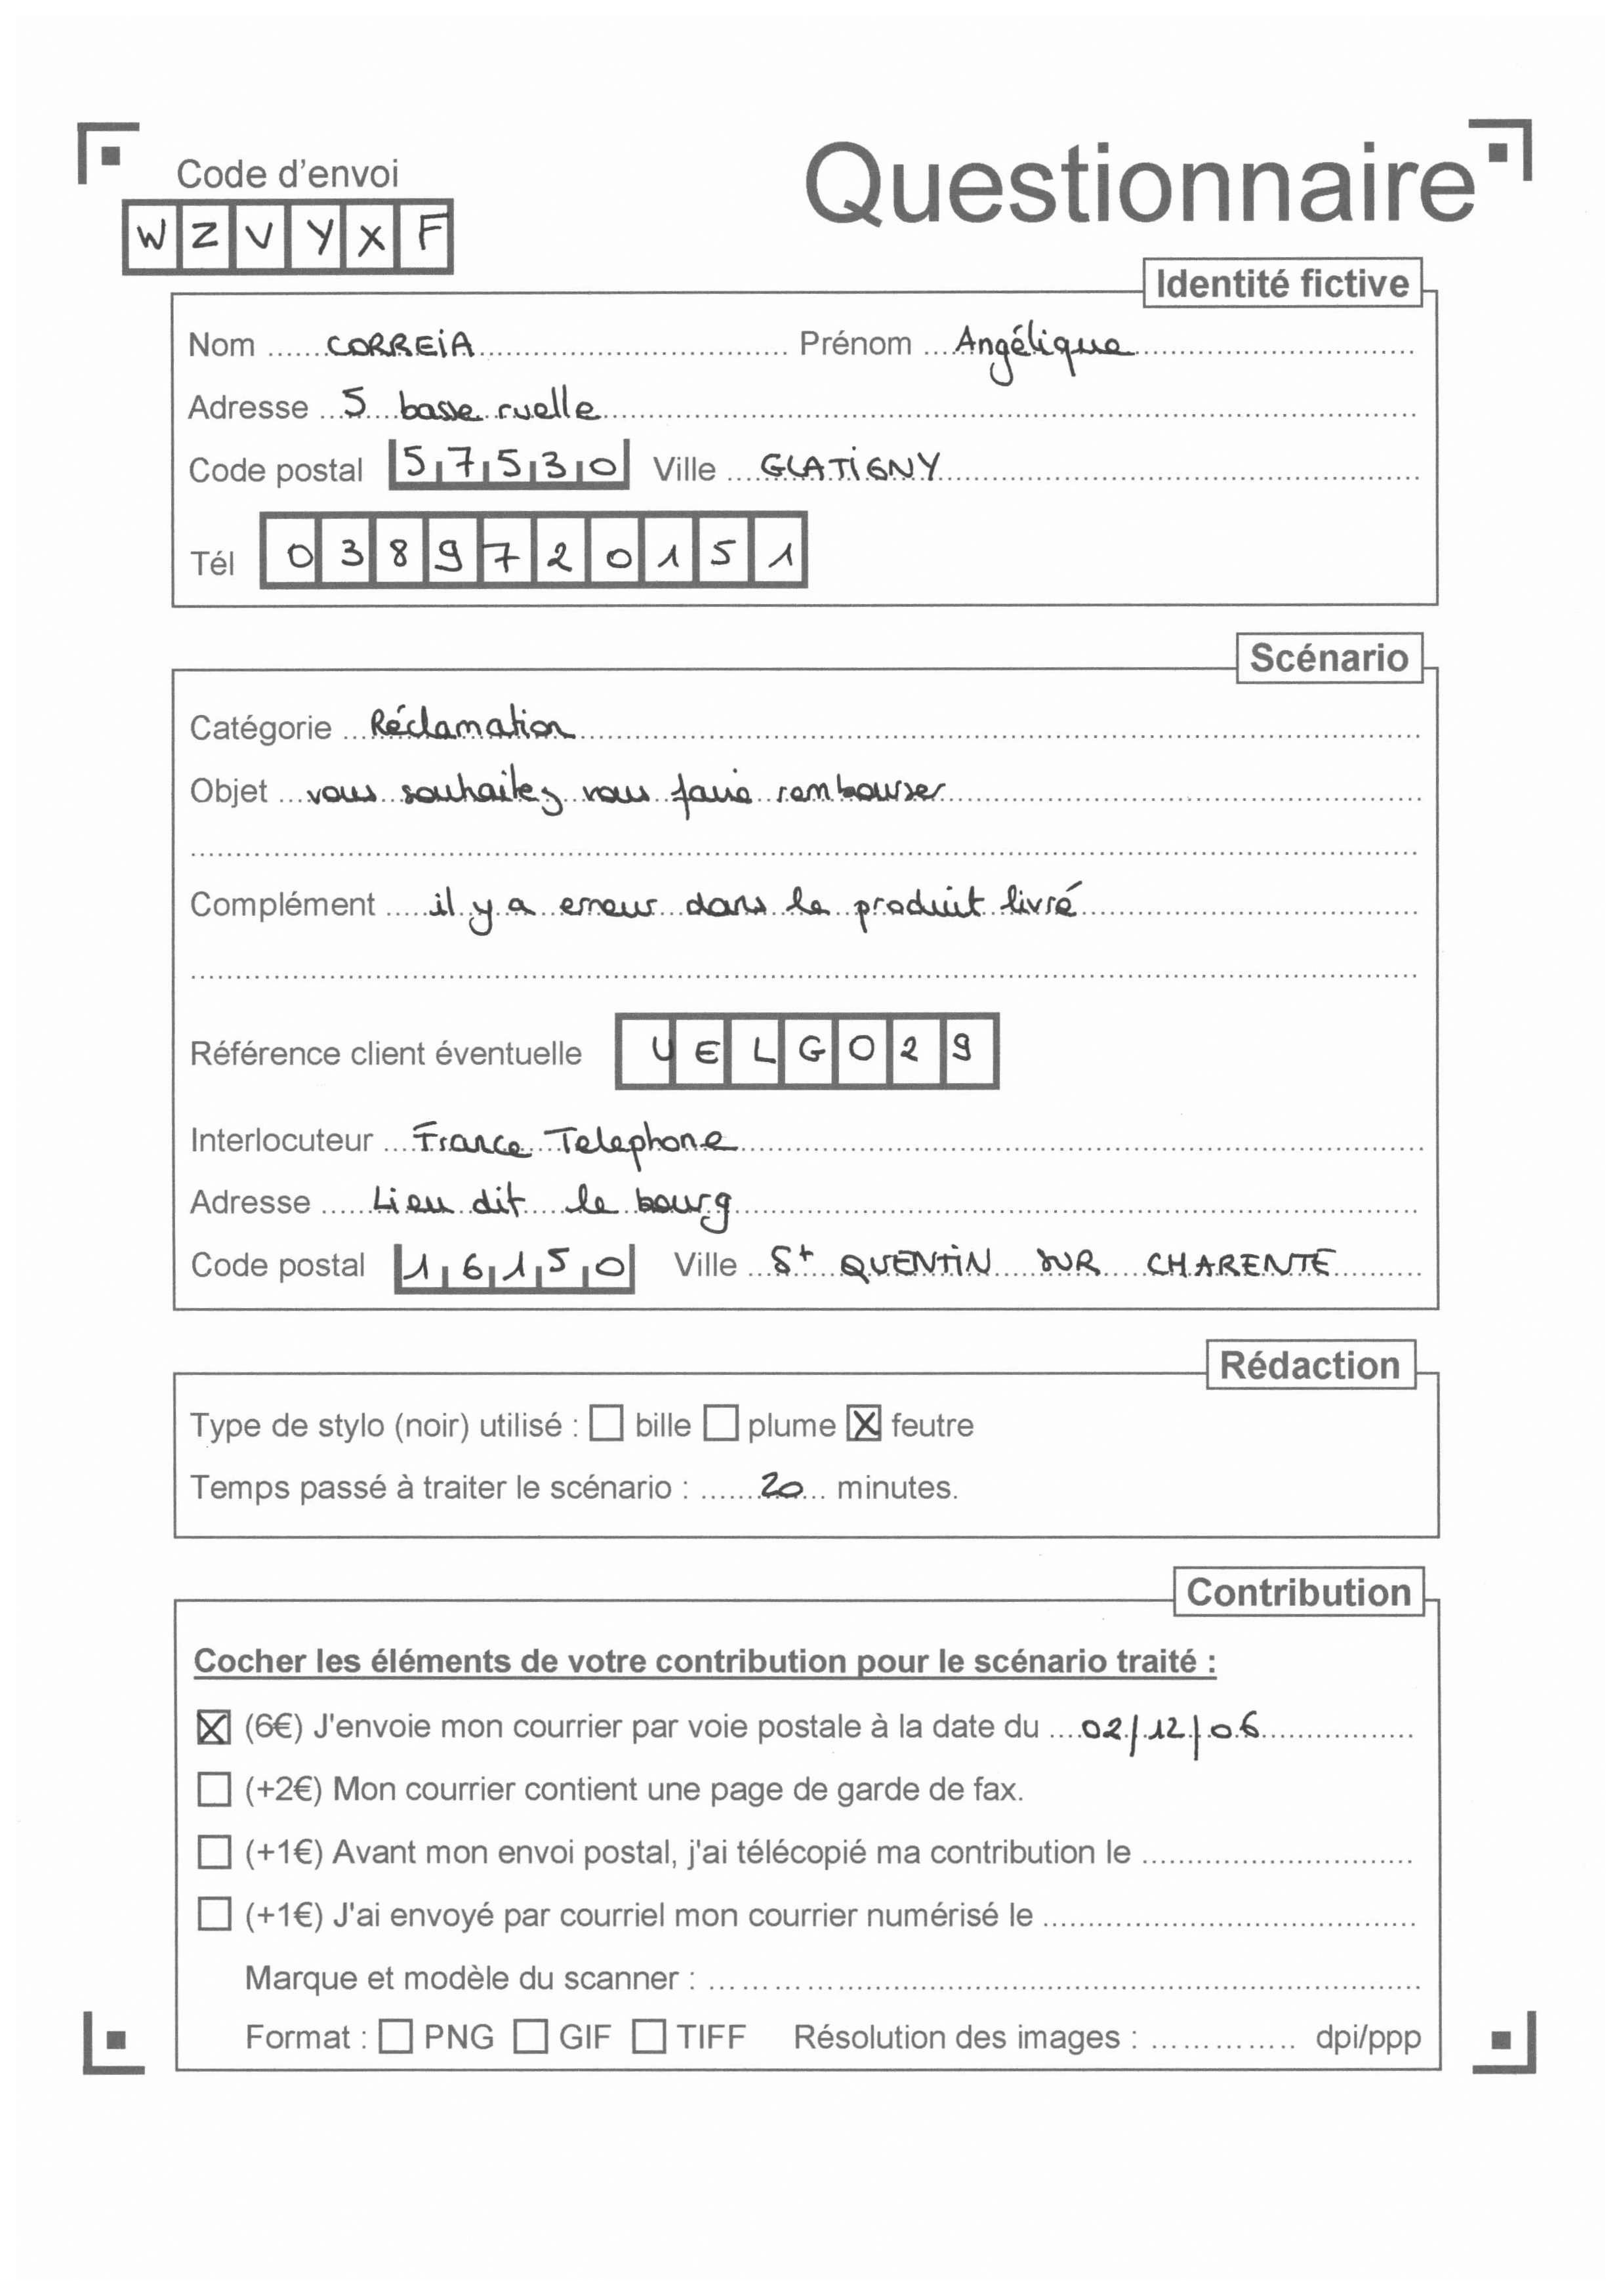 Questionnaire
Code d'envoi
W Z V Y X F
Identité fictive
Nom ...... CORREIA ...... Prénom .... Angélique
Adresse ... 5 basse ruelle
Code postal 57530 Ville .... GLATIGNY
Tél 0389720151
Scénario
Catégorie ... Réclamation
Objet ... vous souhaitez vous faire rembourser
Complément ..... il y a erreur dans le produit livré
Référence client éventuelle UELG029
Interlocuteur .... France Telephone
Adresse ...... Lieu dit le bourg
Code postal 16150 Ville ... St QUENTIN SUR CHARENTE
Rédaction
Type de stylo (noir) utilisé : ☐ bille ☐ plume ☒ feutre
Temps passé à traiter le scénario : ....... 20 ... minutes.
Contribution
Cocher les éléments de votre contribution pour le scénario traité :
☒ (6€) J'envoie mon courrier par voie postale à la date du .... 02/12/06
☐ (+2€) Mon courrier contient une page de garde de fax.
☐ (+1€) Avant mon envoi postal, j'ai télécopié ma contribution le ......
☐ (+1€) J'ai envoyé par courriel mon courrier numérisé le ......
Marque et modèle du scanner : ......
Format : ☐ PNG ☐ GIF ☐ TIFF Résolution des images : ...... dpi/ppp